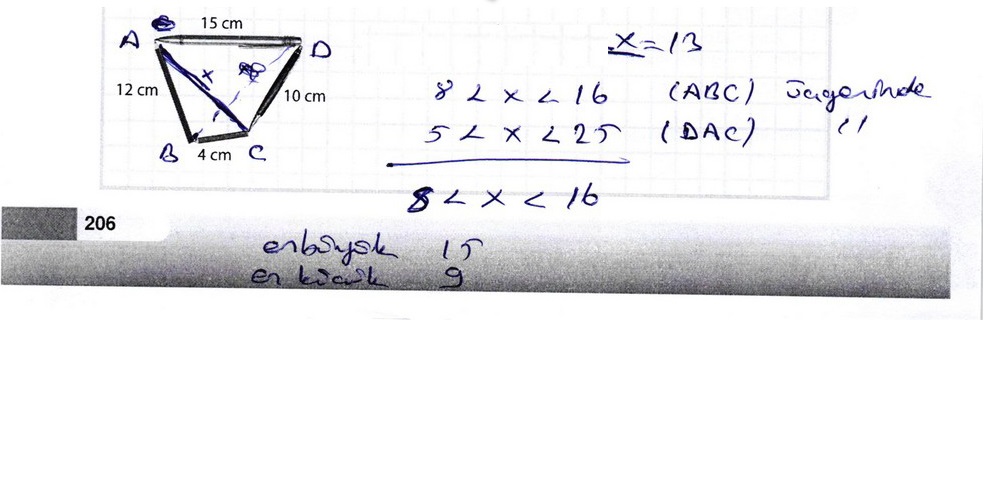 15 cm
A D
x = 13
x
12 cm
10 cm
8 < x < 16 (ABC) üçgeninde
5 < x < 25 (DAC) "
B 4 cm C
8 < x < 16
206
en büyük 15
en küçük 9